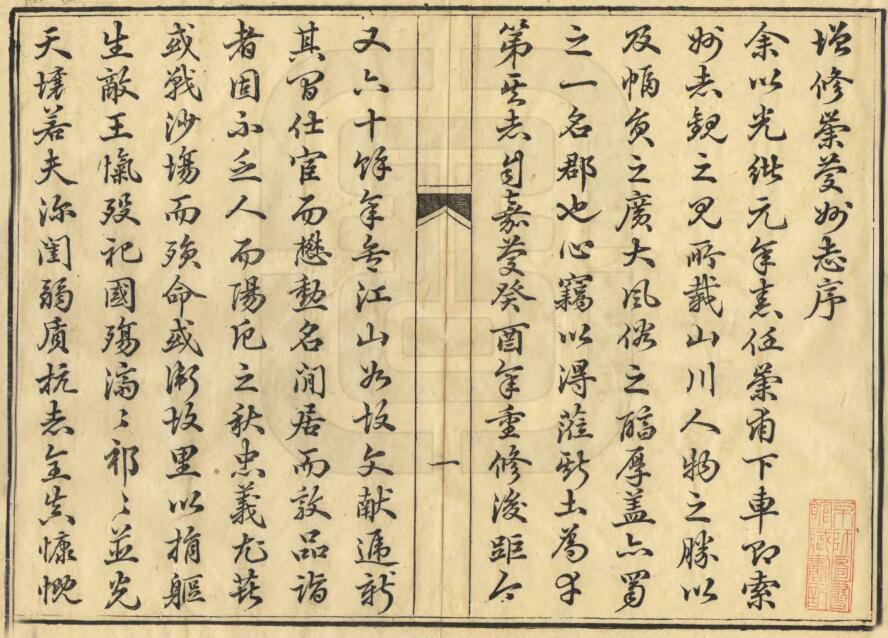 增修崇慶州志序
余以光緒元年來任崇甫下車即索
州志觀之見所載山川人物之勝以
及幅員之廣大風俗之醇厚蓋亦蜀
之一名郡也心竊以得蒞斯土為幸
第其志自嘉慶癸酉年重修後距今
一
又六十餘年矣江山如故文献遞新
其間仕宦而懋勳名閒居而敦品詣
者固不乏人而陽厄之秋忠義尤甚
或戰沙場而殞命或衛故里以捐軀
生敵王愾殁祀國殤濟濟祁祁並光
天壤若夫深閨弱质抗志全貞慷慨